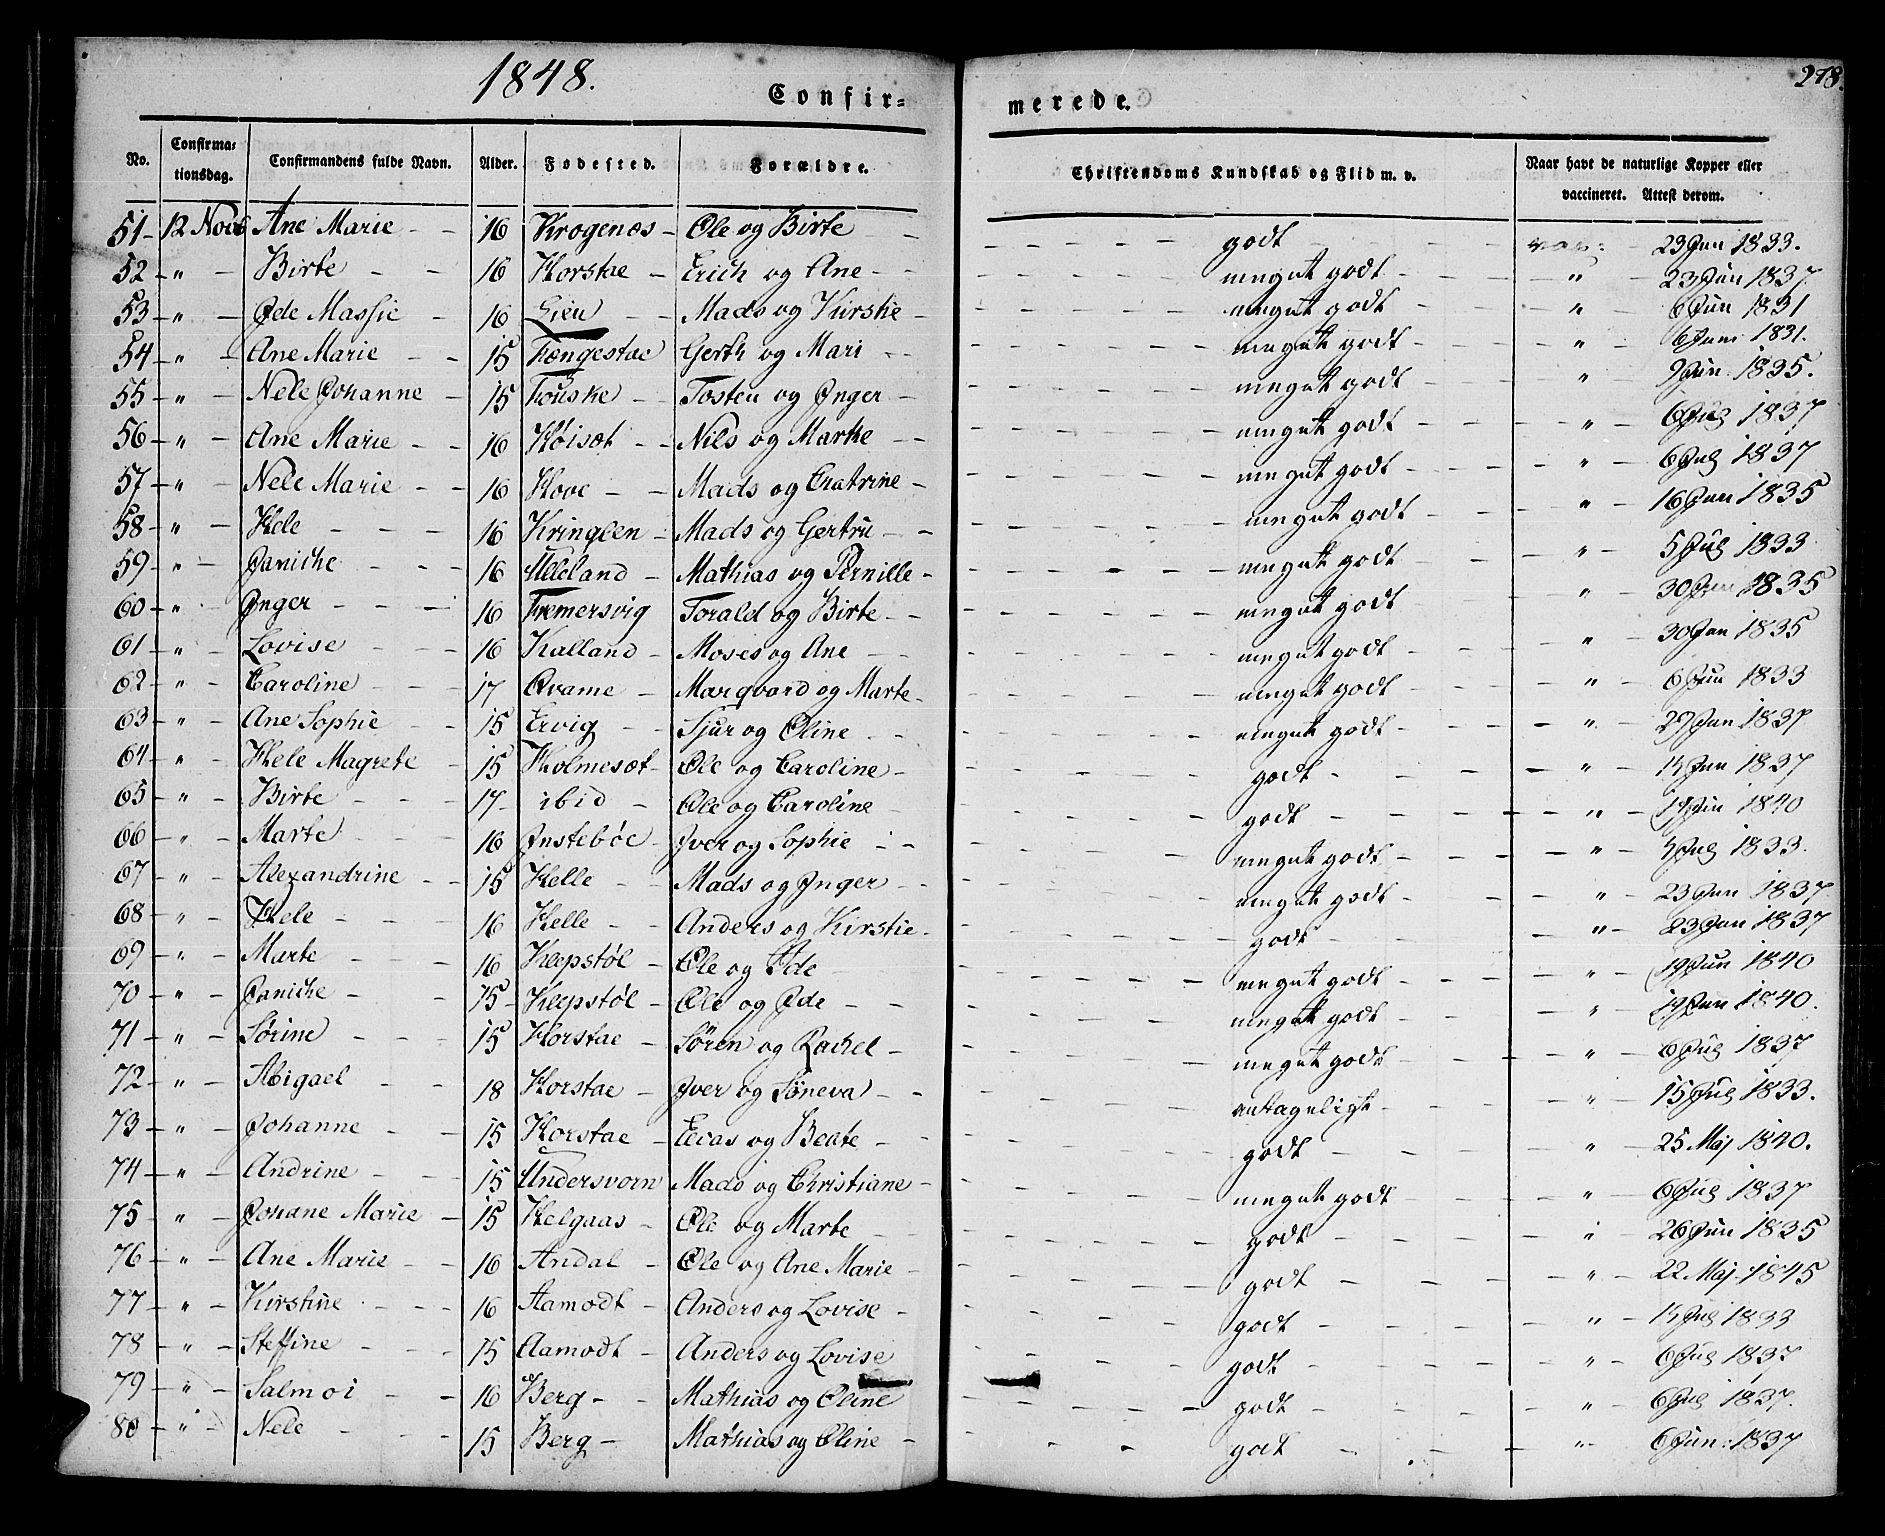 1848.
278.
Confir= merede.
No. Confirma= tionsdag. Confirmandens fulde Navn. Alder. Fødested. Forældre. Christendoms Kundskab og Flid m. v. Naar havt de naturlige Kopper eller vaccineret. Attest derom.
51 - 12 Novb Ane Marie - - 16 Krogenæs - Ole og Birte - godt - vac: - 23 Jun 1833.
52 - " - Birte - - 16 Horstae - Erich og Ane - - meget godt - " - 23 Jun 1837.
53 - " - Ide Massie - 16 Lien - - Mads og Kirstie - meget godt - " - 6 Jun 1831
54 - " - Ane Marie - - 15 Længestae Gerth og Mari - - meget godt - " - 6 Juni 1831.
55 - " - Nele Johanne - 15 Fouske - Tosten og Inger - meget godt - " - 9 Jun: 1835.
56 - " - Ane Marie - - 16 Høisæt - - Nils og Marthe - - meget godt - " - 6 Jul 1837
57 - " - Nele Marie - - 16 Hove - - Mads og Chatrine - meget godt - " - 6 Jul 1837
58 - " - Hele - - - 16 Kringlen - Mads og Gertru - - meget godt - " - 16 Jun 1835
59 - " - Janiche - - - 16 Udland - Mathias og Pernille - meget godt - " - 5 Jul 1833
60 - " - Inger - - - 16 Tremersvig Torald og Birte - - meget godt - " - 30 Jun 1835
61 - " - Lovise - - - 16 Kalland - Moses og Ane - - meget godt - " - 30 Jan 1835
62 - " - Caroline - - - 17 Qvame - Marqvard og Marte - meget godt - " - 6 Jun 1833
63 - " - Ane Sophie - - 15 Ervig - - Sjur og Oline - - meget godt - " - 27 Jun 1837
64 - " - Hele Magrete - 15 Holmesæt - Ole og Caroline - godt - " - Jun 1837
65 - " - Birte - - - 17 - ibid - Ole og Caroline - godt - " - 19 Jun 1840
66 - " - Marte - - 16 Instebøe - Iver og Sophie - - meget godt - " - Jul 1833.
67 - " - Alexandrine - - 15 Helle - - Mads og Inger - - meget godt - " - 23 Jun 1837.
68 - " - Hele - - - 16 Helle - Anders og Kirstie - godt - " - 23 Jun 1837
69 - " - Marte - - - 16 Klepstøl - Ole og Ide - meget godt - " - 19 Jun 1840
70 - " - Janiche - - 15 - Klepstøl - Ole og Ide - - meget godt - " - 19 Jun 1840.
71 - " - Sørine - - - 15 Horstae - Søren og Rachel - meget godt - " - 6 Jul 1837
72 - " - Abigael - - 18 Horstae - Iver og Søneva - - antageligt - " - 15 Jul 1833.
73 - " - Johanne - - 15 Horstae - Elvas og Beate - - godt - " - 25 Maj 1840.
74 - " - Andrine - - 15 Undersvorn Mads og Christiane - meget godt - " - 6 Jul 1837
75 - " - Johane Marie - 15 Helgaas - Ole og Marte - - godt - " - 26 Jun 1835
76 - " - Ane Marie - - 16 Andal - Ole og Ane Marie - godt - " - 22 Maj 1845
77 - " - Kirstine - - - 16 Aamodt - Anders og Lovise - godt - " - Jul 1833
78 - " - Steffine - - - 15 Aamodt - Anders og Lovise - godt - " - 6 Jul 1837
79 - " - Salmoi - - 16 Berg - - Mathias og Oline - godt - " - 6 Jul 1837.
80 - " - Nele - - - 15 Berg - Mathias og Oline - godt - " - 6 Jun: 1837